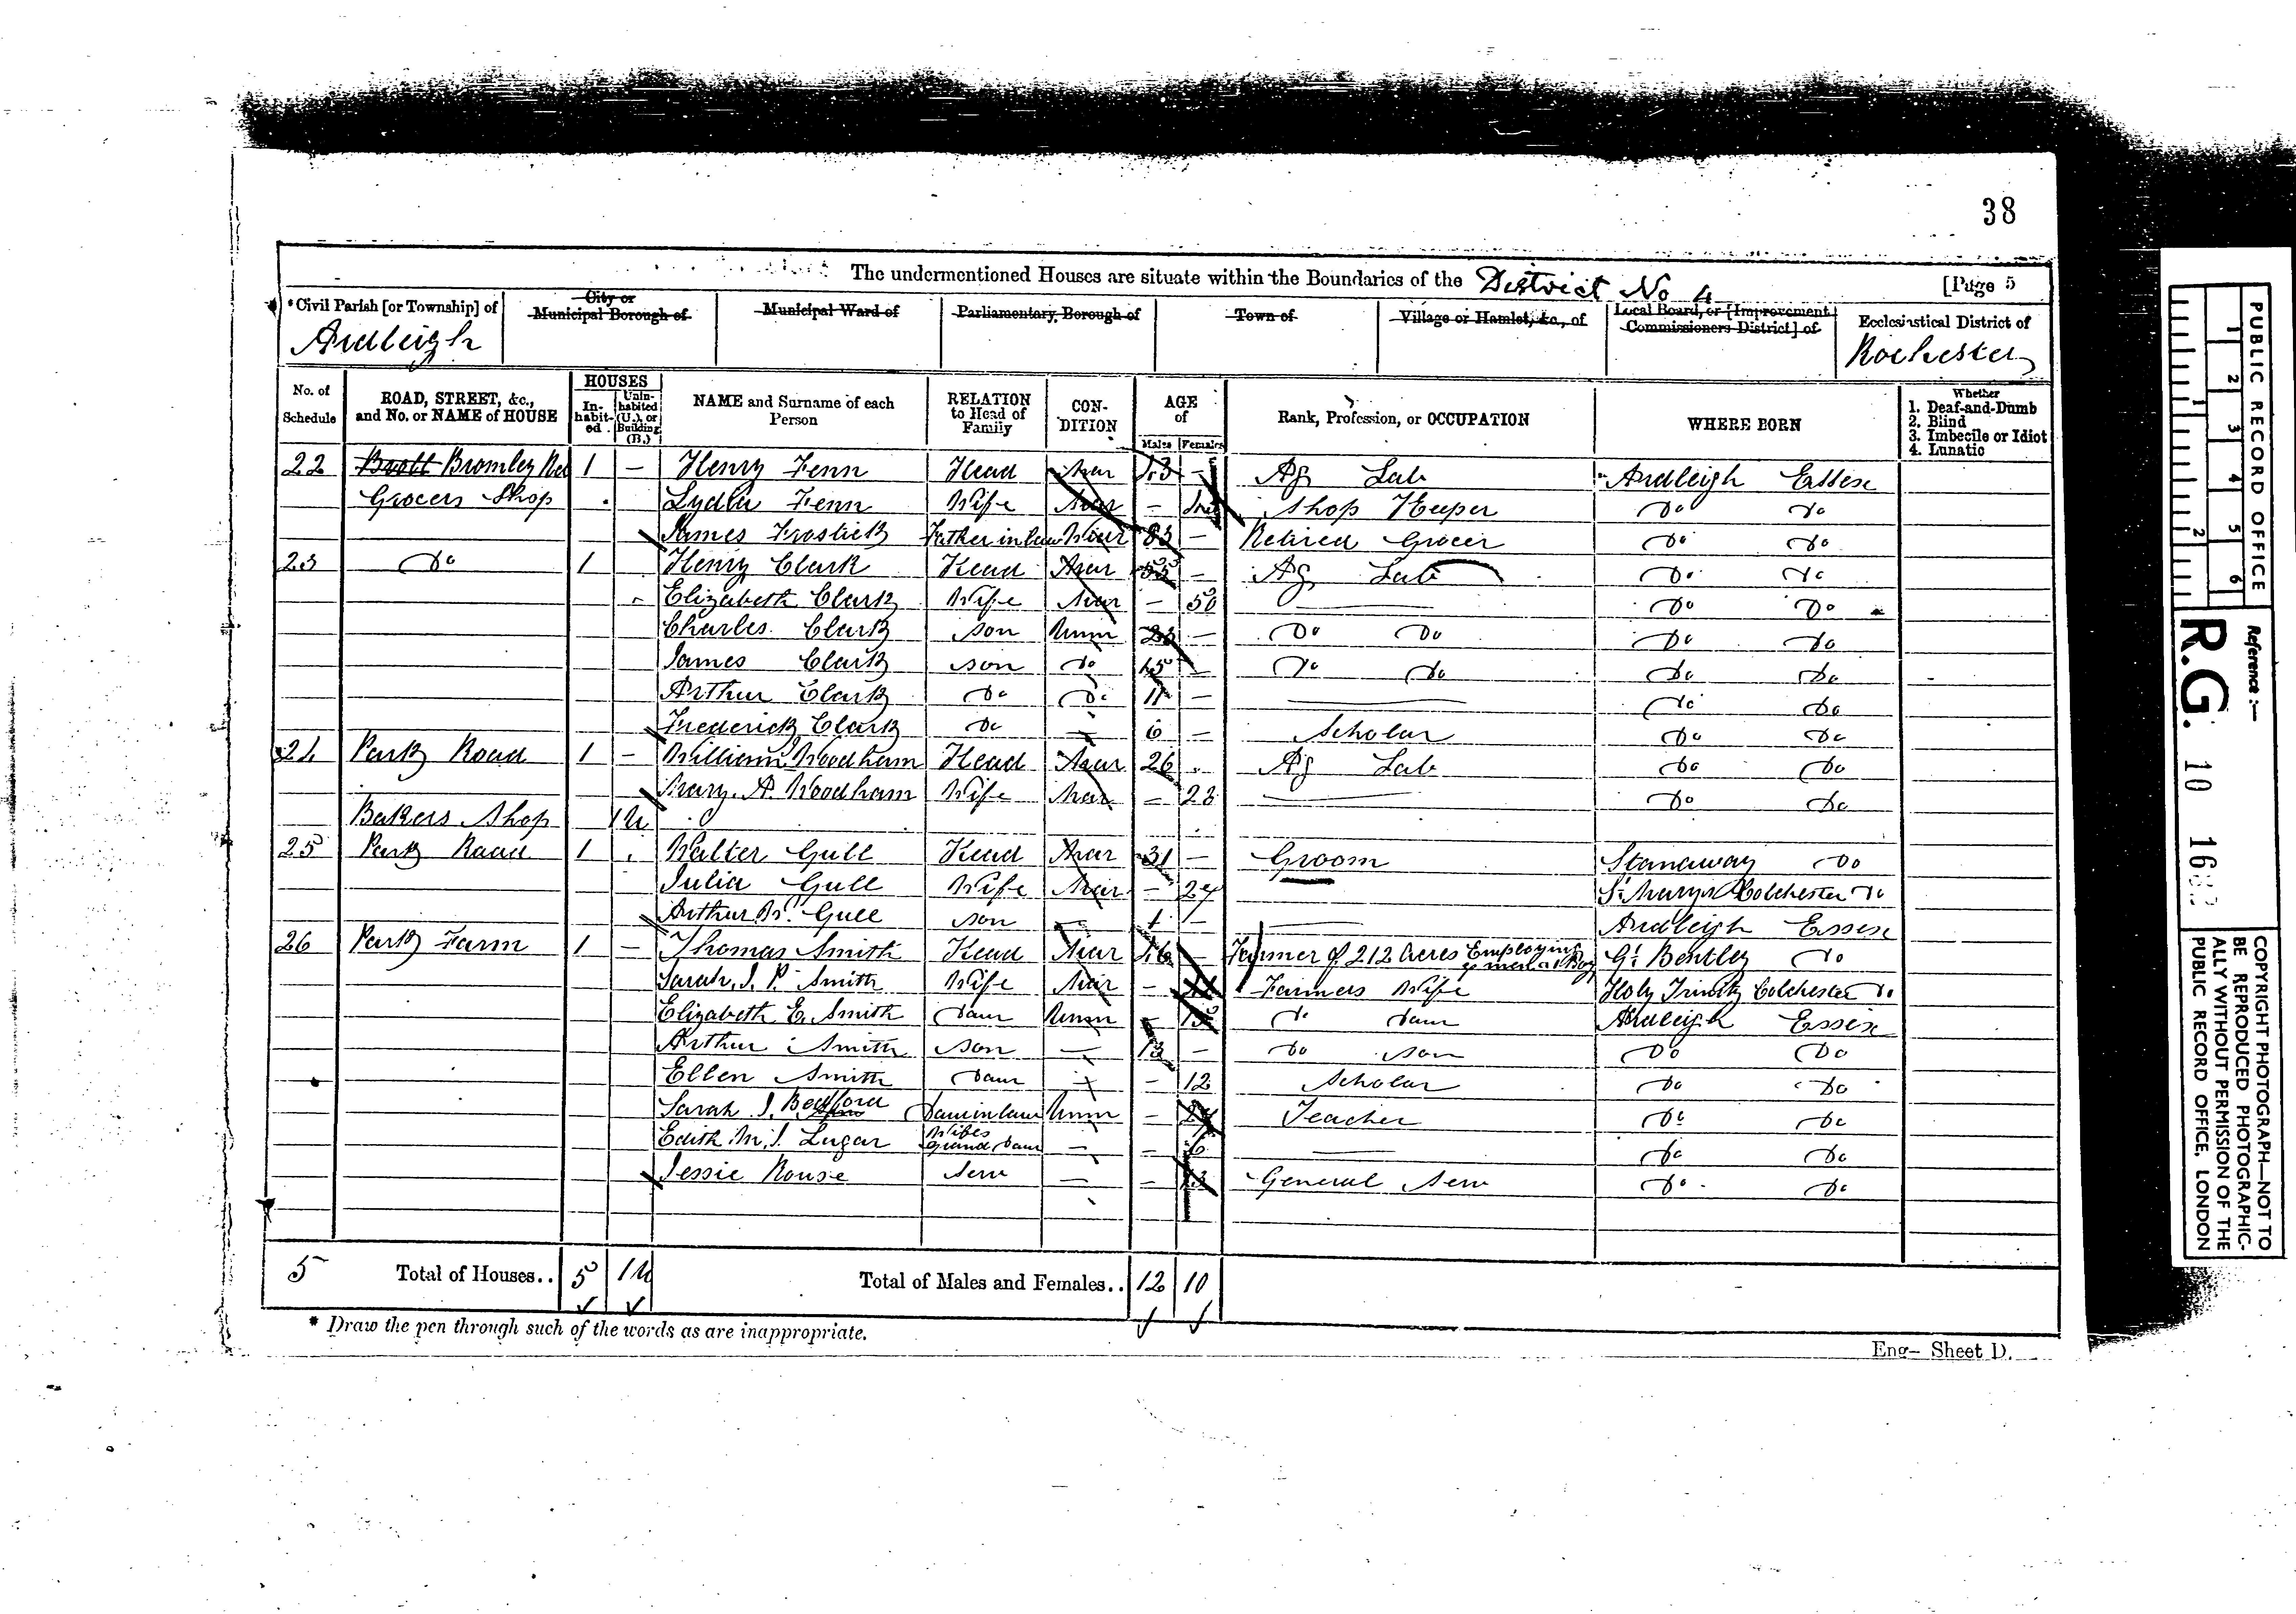 38
The undermentioned Houses are situate within the Boundaries of the District No 4 [Page 5
* Civil Parish [or Township] of
Ardleigh
City or Municipal Borough of
Municipal Ward of
Parliamentary Borough of
Town of
Village or Hamlet, &c., of
Local Board, or [Improvement Commissioners District] of
Ecclesiastical District of
Rochester
No. of Schedule
ROAD, STREET, &c., and No. or NAME of HOUSE
HOUSES
Inhabited
Uninhabited (U.), or Building (B.)
NAME and Surname of each Person
RELATION to Head of Family
CONDITION
AGE of
Males Females
Rank, Profession, or OCCUPATION
WHERE BORN
Whether
1. Deaf-and-Dumb
2. Blind
3. Imbecile or Idiot
4. Lunatic
22 Bromley Rd 1 – Henry Fenn Head Mar 43 – Ag Lab Ardleigh Essex
Grocers Shop Lydia Fenn Wife Mar – Shop Keeper Do Do
James Frostick Father in law Widr 83 – Retired Grocer Do Do
23 Do 1 Henry Clark Head Mar 55 – Ag Lab Do Do
Elizabeth Clark Wife Mar – 50 — Do Do
Charles Clark son Unm 23 – Do Do Do Do
James Clark son Do 15 – Do Do Do Do
Arthur Clark Do Do 11 – — Do Do
Frederick Clark Do – 6 – Scholar Do Do
24 Park Road 1 – William Woodham Head Mar 26 Ag Lab Do Do
Mary. A. Woodham Wife Mar – 28 — Do Do
Bakers Shop 1U
25 Park Road 1 Walter Gull Head Mar 31 – Groom Stanaway Do
Julia Gull Wife Mar – 27 St Marys Colchester Do
Arthur W. Gull son – 1 – — Ardleigh Essex
26 Park Farm 1 – Thomas Smith Head Mar 46 – Farmer of 212 Acres Employing Boy Gt Bentley Do
Sarah. J. P. Smith Wife Mar – Farmers Wife Holy Trinity Colchester Do
Elizabeth E. Smith Daur Unm – 15 Do Daur Ardleigh Essex
Arthur Smith son – 13 – Do son Do Do
Ellen Smith Daur – – 12 Scholar Do Do
Sarah J. Bedford Daur in law Unm – 24 Teacher Do Do
Edith M. J. Lugar Wifes Grand Daur – – 6 — Do Do
Jessie Rouse Serv – – 13 General Serv Do Do
5 Total of Houses.. 5 1U Total of Males and Females.. 12 10
* Draw the pen through such of the words as are inappropriate.
Eng– Sheet D.
PUBLIC RECORD OFFICE
1 2 3 4 5 6
1 2
Reference :—
R.G. 10
COPYRIGHT PHOTOGRAPH—NOT TO
BE REPRODUCED PHOTOGRAPHIC-
ALLY WITHOUT PERMISSION OF THE
PUBLIC RECORD OFFICE, LONDON